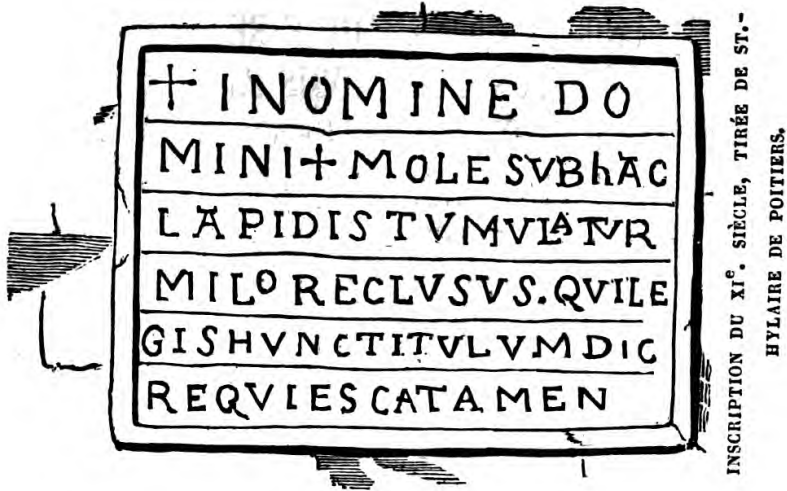 + INOMINE DO
MINI + MOLE SVBhAC
LAPIDIS TVMVLATVR
MILO RECLVSVS. QVILE
GISHVNCTITVLVM DIC
REQVIESCAT AMEN
INSCRIPTION DU XIe. SIÈCLE, TIRÉE DE ST.-
HYLAIRE DE POITIERS.